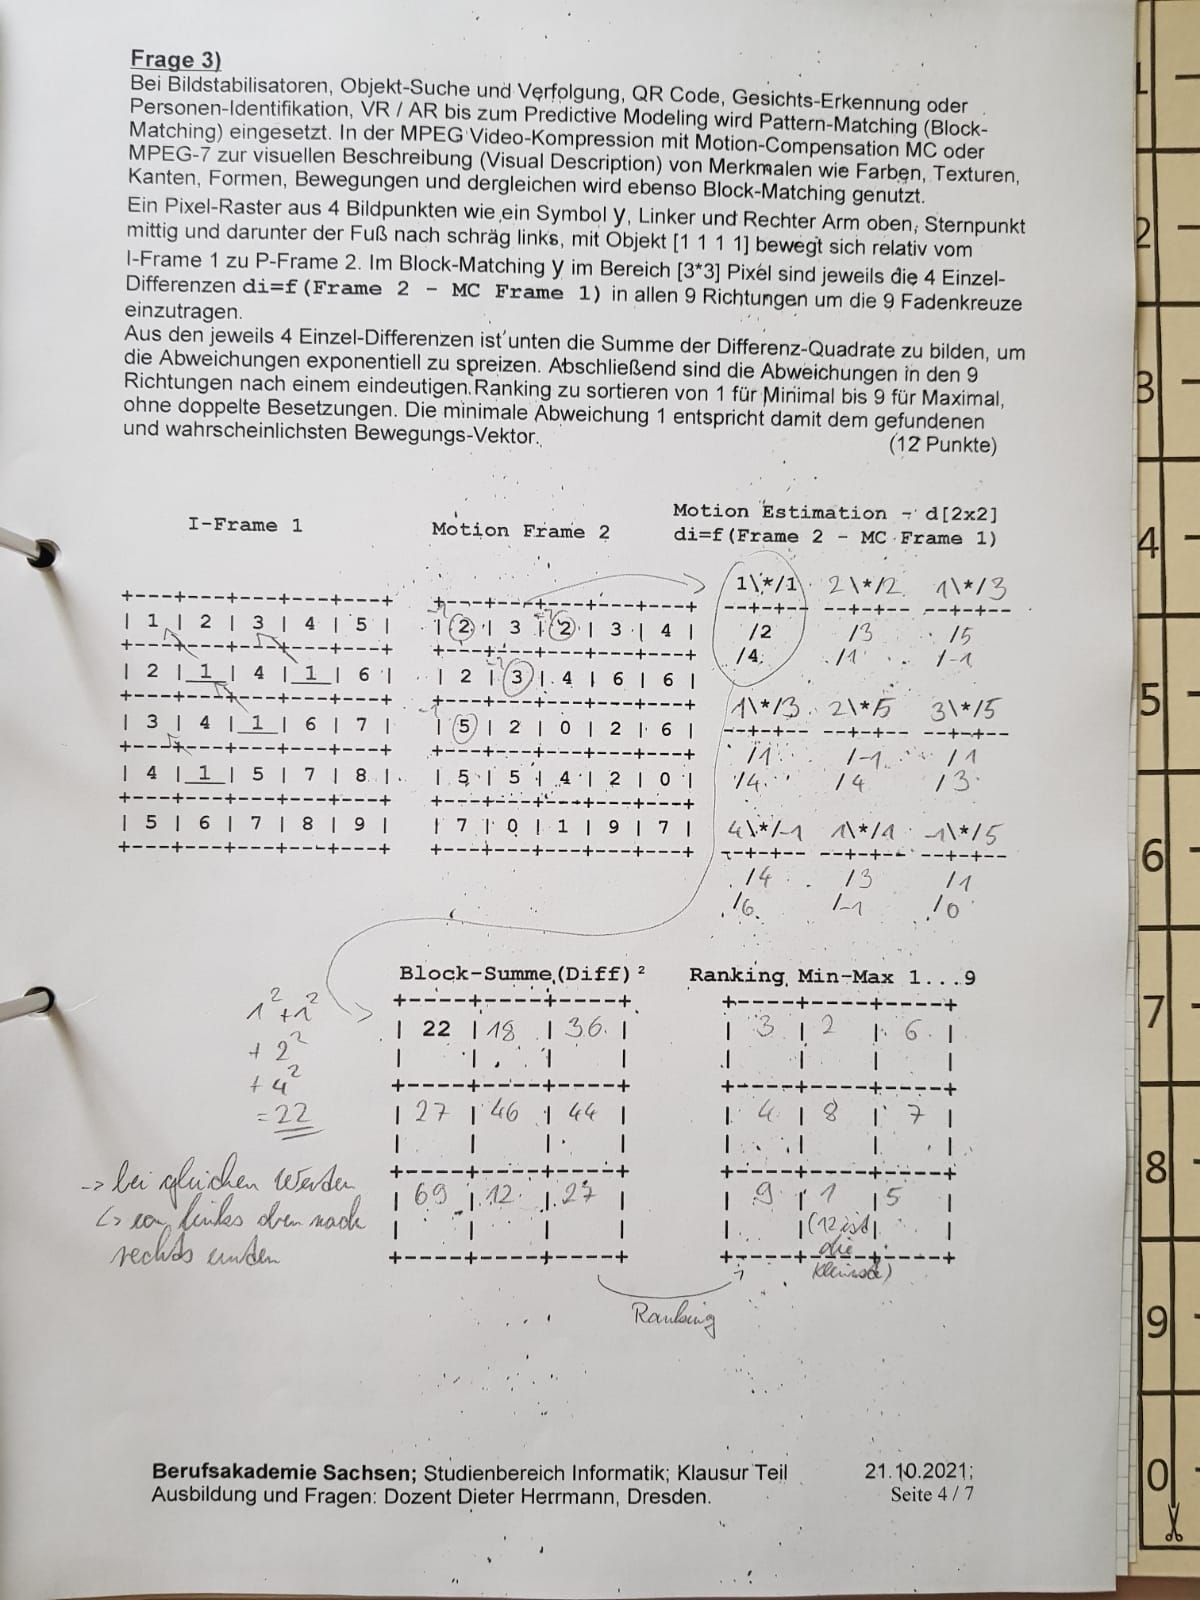 Frage 3)
Bei Bildstabilisatoren, Objekt-Suche und Verfolgung, QR Code, Gesichts-Erkennung oder
Personen-Identifikation, VR / AR bis zum Predictive Modeling wird Pattern-Matching (Block-
Matching) eingesetzt. In der MPEG Video-Kompression mit Motion-Compensation MC oder
MPEG-7 zur visuellen Beschreibung (Visual Description) von Merkmalen wie Farben, Texturen,
Kanten, Formen, Bewegungen und dergleichen wird ebenso Block-Matching genutzt.
Ein Pixel-Raster aus 4 Bildpunkten wie ein Symbol y, Linker und Rechter Arm oben, Sternpunkt
mittig und darunter der Fuß nach schräg links, mit Objekt [1 1 1 1] bewegt sich relativ vom
I-Frame 1 zu P-Frame 2. Im Block-Matching y im Bereich [3*3] Pixel sind jeweils die 4 Einzel-
Differenzen di=f(Frame 2 - MC Frame 1) in allen 9 Richtungen um die 9 Fadenkreuze
einzutragen.
Aus den jeweils 4 Einzel-Differenzen ist unten die Summe der Differenz-Quadrate zu bilden, um
die Abweichungen exponentiell zu spreizen. Abschließend sind die Abweichungen in den 9
Richtungen nach einem eindeutigen Ranking zu sortieren von 1 für Minimal bis 9 für Maximal,
ohne doppelte Besetzungen. Die minimale Abweichung 1 entspricht damit dem gefundenen
und wahrscheinlichsten Bewegungs-Vektor.
(12 Punkte)
I-Frame 1
Motion Frame 2
Motion Estimation - d[2x2]
di=f(Frame 2 - MC Frame 1)
+---+---+---+---+---+ +---+---+---+---+---+ 1\*/1 2\*/2 1\*/3
| 1 | 2 | 3 | 4 | 5 | | 2 | 3 | 2 | 3 | 4 | --+-+-- --+-+-- --+-+--
+---+---+---+---+---+ +---+---+---+---+---+ /2 /3 /5
| 2 | 1 | 4 | 1 | 6 | | 2 | 3 | 4 | 6 | 6 | /4 /1 /-1
+---+---+---+---+---+ +---+---+---+---+---+ 1\*/3 2\*/5 3\*/5
| 3 | 4 | 1 | 6 | 7 | | 5 | 2 | 0 | 2 | 6 | --+-+-- --+-+-- --+-+--
+---+---+---+---+---+ +---+---+---+---+---+ /1 /-1 /1
| 4 | 1 | 5 | 7 | 8 | | 5 | 5 | 4 | 2 | 0 | /4 /4 /3
+---+---+---+---+---+ +---+---+---+---+---+
| 5 | 6 | 7 | 8 | 9 | | 7 | 0 | 1 | 9 | 7 | 4\*/-1 1\*/1 -1\*/5
+---+---+---+---+---+ +---+---+---+---+---+ --+-+-- --+-+-- --+-+--
/4 /3 /1
/6 /-1 /0
Block-Summe (Diff)²
Ranking Min-Max 1...9
1² +1²
+ 2²
+ 4²
= 22
+----+----+----+ +----+----+----+
| 22 | 18 | 36 | | 3 | 2 | 6 |
| | | | | | | |
+----+----+----+ +----+----+----+
| 27 | 46 | 44 | | 4 | 8 | 7 |
| | | | | | | |
+----+----+----+ +----+----+----+
| 69 | 12 | 27 | | 9 | 1 | 5 |
| | | | | | (12 ist | |
+----+----+----+ +----+----+----+
die
kleinste)
-> bei gleichen Werden
↳ links oben nach
rechts unden
Ranking
Berufsakademie Sachsen; Studienbereich Informatik; Klausur Teil
Ausbildung und Fragen: Dozent Dieter Herrmann, Dresden.
21.10.2021;
Seite 4 / 7
1
2
3
4
5
6
7
8
9
0